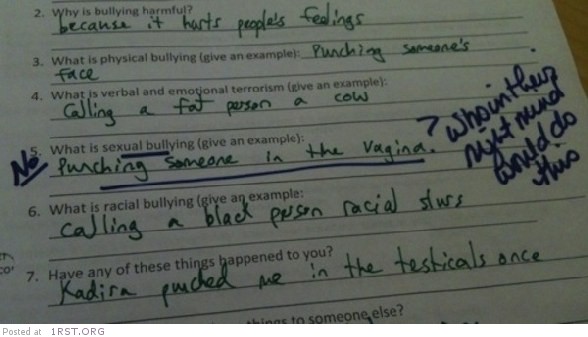 2. Why is bullying harmful?
because it horts people's feelings
3. What is physical bullying (give an example): Punching someone's
face
4. What is verbal and emotional terrorism (give an example):
Calling a fat person a cow
5. What is sexual bullying (give an example):
No
Punching someone in the vagina.
? who in their
right mind
would do
this
6. What is racial bullying (give an example:
calling a black person racial slurs
7. Have any of these things happened to you?
Kadira punched me in the testicals once
things to someone else?
Posted at 1RST.ORG